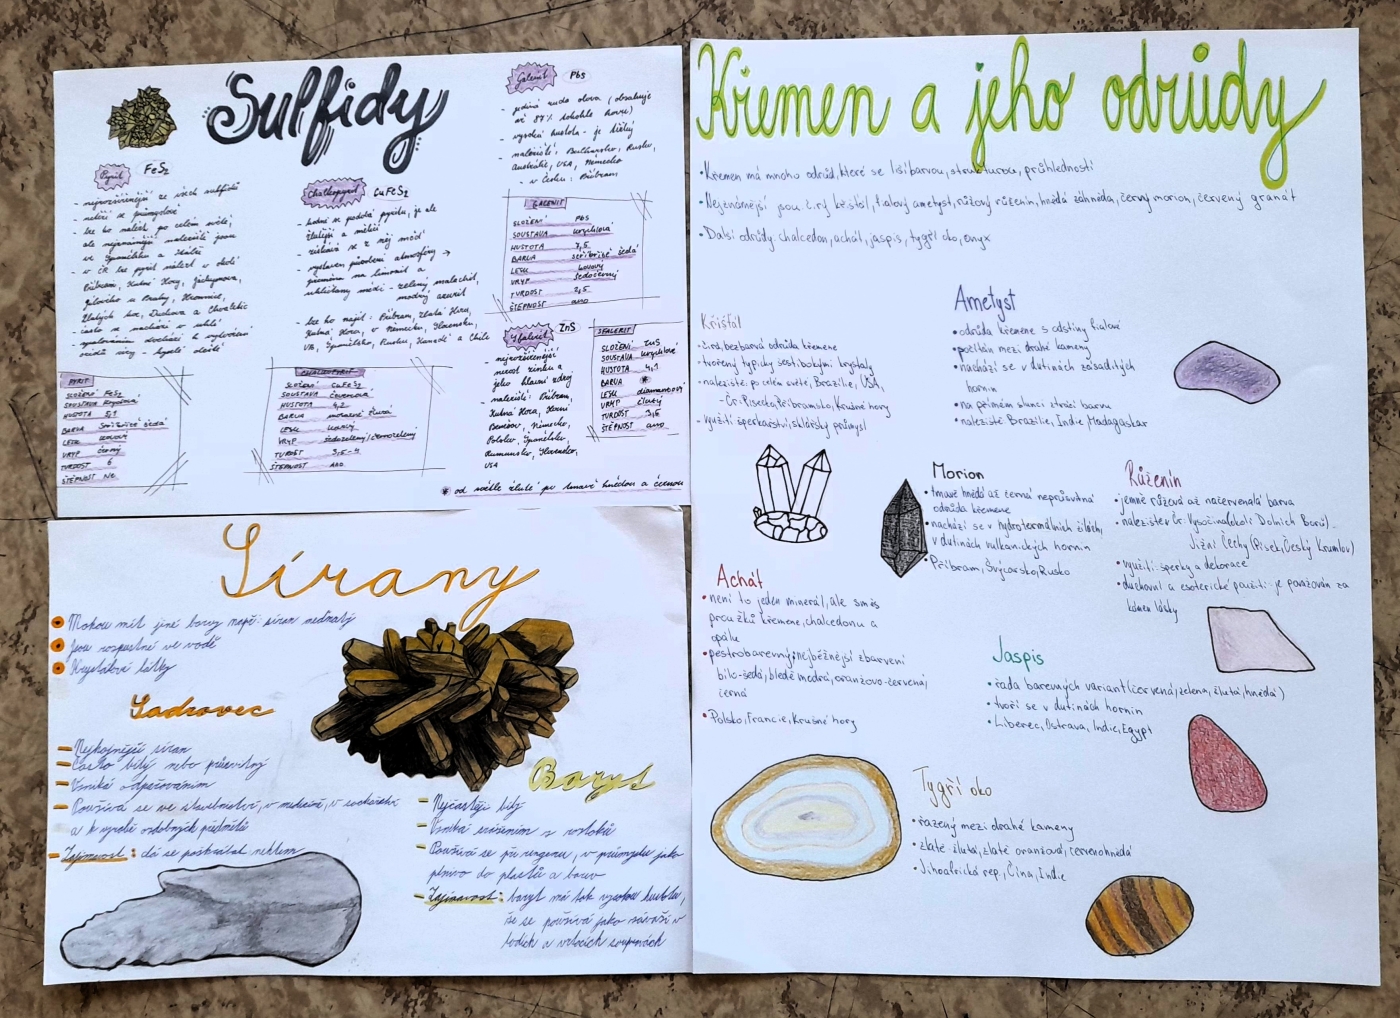 Sulfidy
Pyrit FeS2
- nejrozšířenější ze všech sulfidů
- neliší se průmyslově
- lze ho nalézt po celém světě,
ale nejznámější naleziště jsou
ve Španělsku a Itálii
- v ČR lze pyrit nalézt v okolí
Příbrami, Kutné Hory, Jáchymova,
Jílového u Prahy, Kremnice,
Zlatých hor, Duchova a Chvaletic
- často se nachází v uhlí
PYRIT
SLOŽENÍ FeS2
SOUSTAVA krychlová
HUSTOTA 5,1
BARVA stříbřitě šedá
LESK kovový
VRYP černý
TVRDOST 6
ŠTĚPNOST NE
Chalkopyrit CuFeS2
- hodně se podobá pyritu, je ale
žlutější a měkčí
- získává se z něj měď
- vystaven působení atmosféry →
přeměna na limonit a
uhličitany mědi - zelený malachit,
modrý azurit
- lze ho najít: Příbram, Zlaté Hory,
Kutná Hora, v Německu, Slovensku,
VB, Španělsku, Rusku, Kanadě a Chile
CHALKOPYRIT
SLOŽENÍ CuFeS2
SOUSTAVA čtverečná
HUSTOTA 4,2
BARVA mosazně žlutá
LESK kovový
VRYP šedozelený/černozelený
TVRDOST 3,5-4
ŠTĚPNOST ANO
Galenit PbS
- jediná ruda olova (obsahuje
až 87% tohohle kovu)
- vysoká hustota - je těžký
- naleziště: Bulharsko, Rusko,
Austrálie, USA, Německo
- v Česku: Příbram
GALENIT
SLOŽENÍ PbS
SOUSTAVA krychlová
HUSTOTA 7,5
BARVA stříbřitě šedá
LESK kovový
VRYP šedočerný
TVRDOST 2,5
ŠTĚPNOST ANO
Sfalerit ZnS
- nejrozšířenější
nerost zinku a
jeho hlavní zdroj
- naleziště: Příbram,
Kutná Hora, Horní
Benešov, Německo,
Polsko, Španělsko,
Rumunsko, Slovensko,
USA
SFALERIT
SLOŽENÍ ZnS
SOUSTAVA krychlová
HUSTOTA 4,1
BARVA *
LESK diamantový
VRYP žlutý
TVRDOST 3,5
ŠTĚPNOST ANO
* od světle žluté po tmavě hnědou a černou
Sírany
Mohou mít jiné barvy např: síran měďnatý
Jsou rozpustné ve vodě
Krystalové látky
Sádrovec
- Nejhojnější síran
- Často bílý nebo průsvitný
- Vzniká odpařováním
- Používá se ve stavebnictví, v medicíně, v sochařství
a k výrobě ozdobných předmětů
- Zajímavost: dá se poškrábat nehtem
Baryt
- Nejčastěji bílý
- Vzniká srážením z roztoků
- Používá se při rengenu, v průmyslu jako
plnivo do plastů a barev
- Zajímavost: baryt má tak vysokou hustotu,
že se používá jako závaží v
lodích a vrtacích soupravách
Křemen a jeho odrůdy
• Křemen má mnoho odrůd, které se liší barvou, strukturou, průhledností
• Nejznámější jsou čirý křišťál, fialový ametyst, růžový růženín, hnědá záhněda, černý morion, červený granát
• Další odrůdy chalcedon, achát, jaspis, tygří oko, onyx
Křišťál
• čirá, bezbarvá odrůda křemene
• tvořený typicky šestibokými krystaly
• naleziště: po celém světě, Brazílie, USA,
Čr: Písecko, Příbramsko, Krušné hory
• využití: šperkařství, sklářský průmysl
Ametyst
• odrůda křemene s odstíny fialové
• počítán mezi drahé kameny
• nachází se v dutinách zásaditých
hornin
• na přímém slunci ztrácí barvu
• naleziště Brazílie, Indie, Madagaskar
Morion
• tmavě hnědá až černá neprůsvitná
odrůda křemene
• nachází se v hydrotermálních žilách,
v dutinách vulkanických hornin
• Příbram, Švýcarsko, Rusko
Růženín
• jemně růžová až načervenalá barva
• naleziště v Čr: Vysočina (okolí Dolních Borů)
Jižní Čechy (Písek, Český Krumlov)
• využití: šperky a dekorace
• duchovní a esoterické použití: je považován za
kámen lásky
Achát
• není to jeden minerál, ale směs
proužků křemene, chalcedonu a
opálu
• pestrobarevný: nejběžnější zbarvení
bílo-šedá, bledě modrá, oranžovo-červená,
černá
• Polsko, Francie, Krušné hory
Jaspis
• řada barevných variant (červená, zelená, žlutá, hnědá)
• tvoří se v dutinách hornin
• Liberec, Ostrava, Indie, Egypt
Tygří oko
• řazený mezi drahé kameny
• zlatě žlutá, zlatě oranžová, červenohnědá
• Jihoafrická rep., Čína, Indie